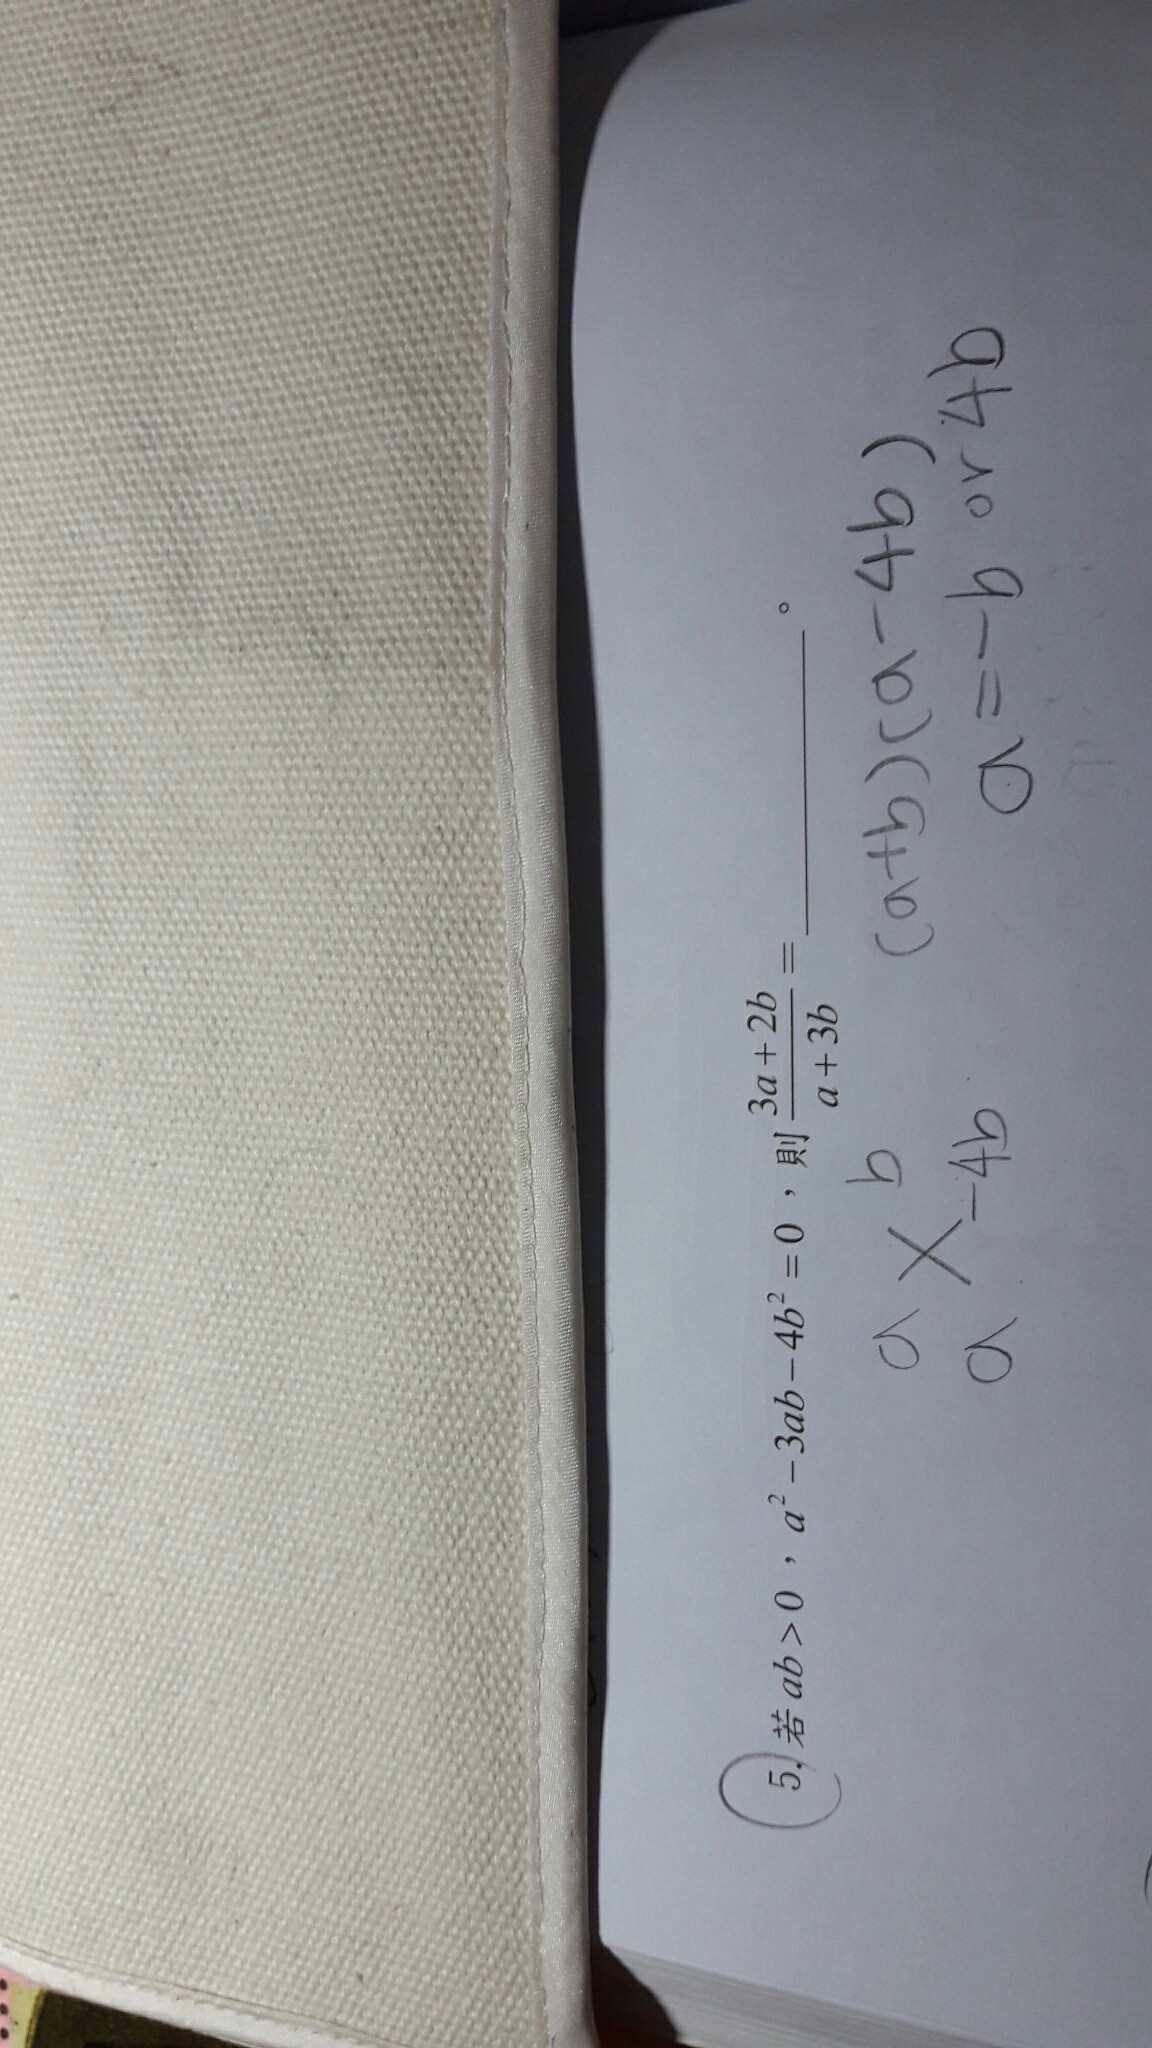 5. 若 ab > 0，a² − 3ab − 4b² = 0，則 (3a + 2b)/(a + 3b) = ________。
a b (a+b)(a-4b)
a -4b a=-b or 4b